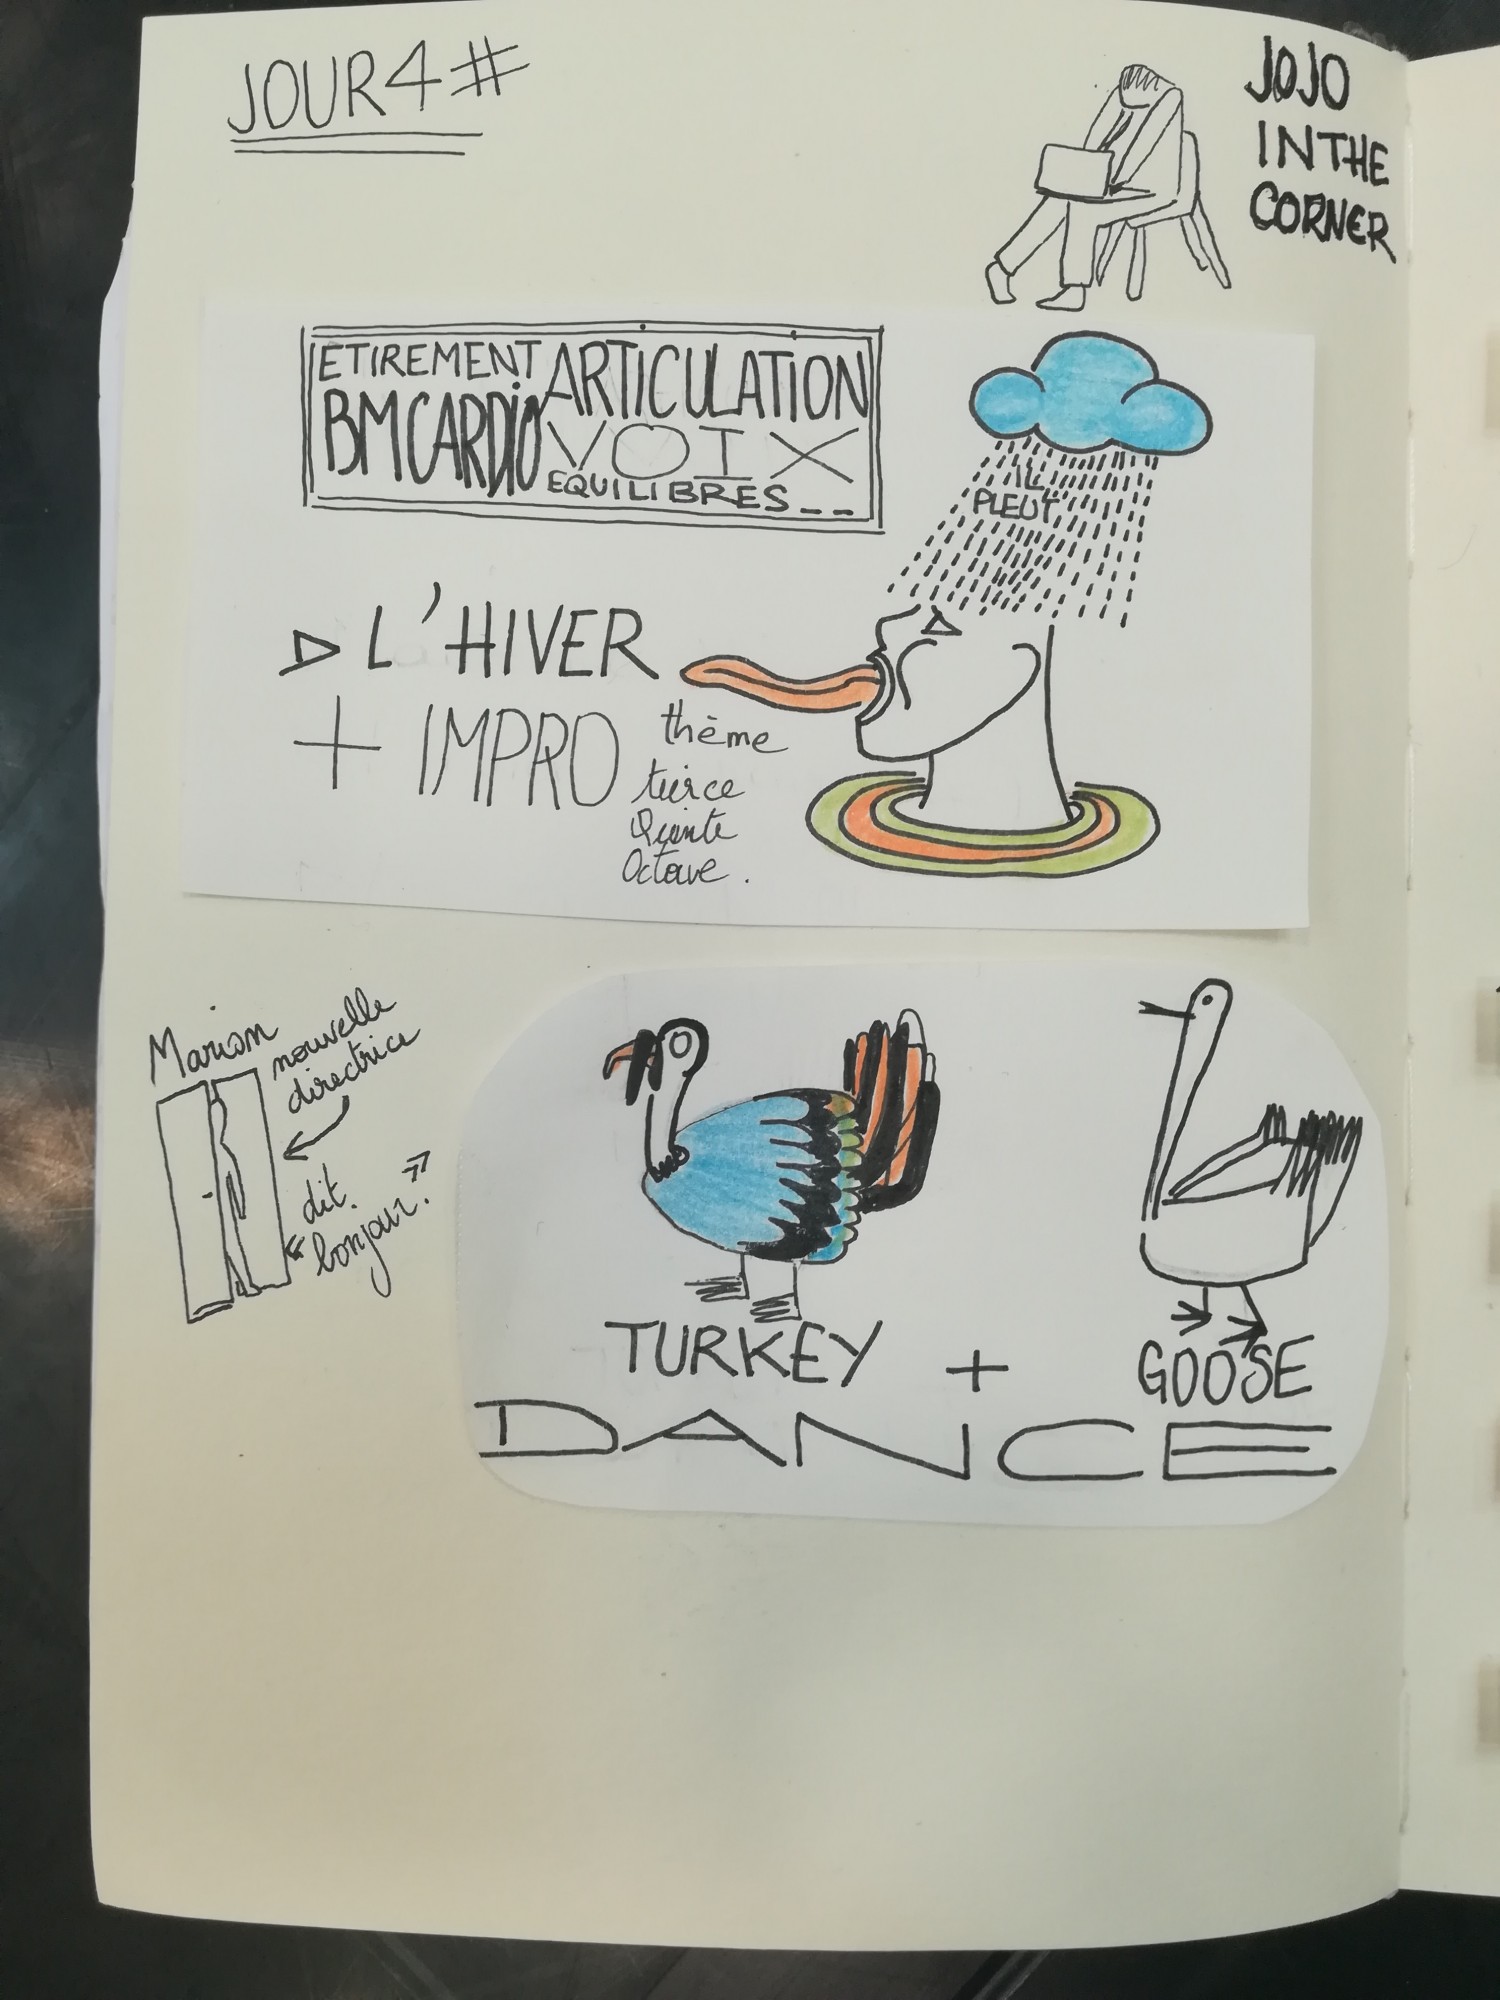 JOUR 4 #
JOJO
IN THE
CORNER
ETIREMENT ARTICULATION
BM CARDIO VOIX
EQUILIBRES _ _
IL
PLEUT
L'HIVER
+ IMPRO
thème
tierce
Quinte
Octave.
Marion
nouvelle
directrice
dit.
"bonjour."
TURKEY + GOOSE
DANCE